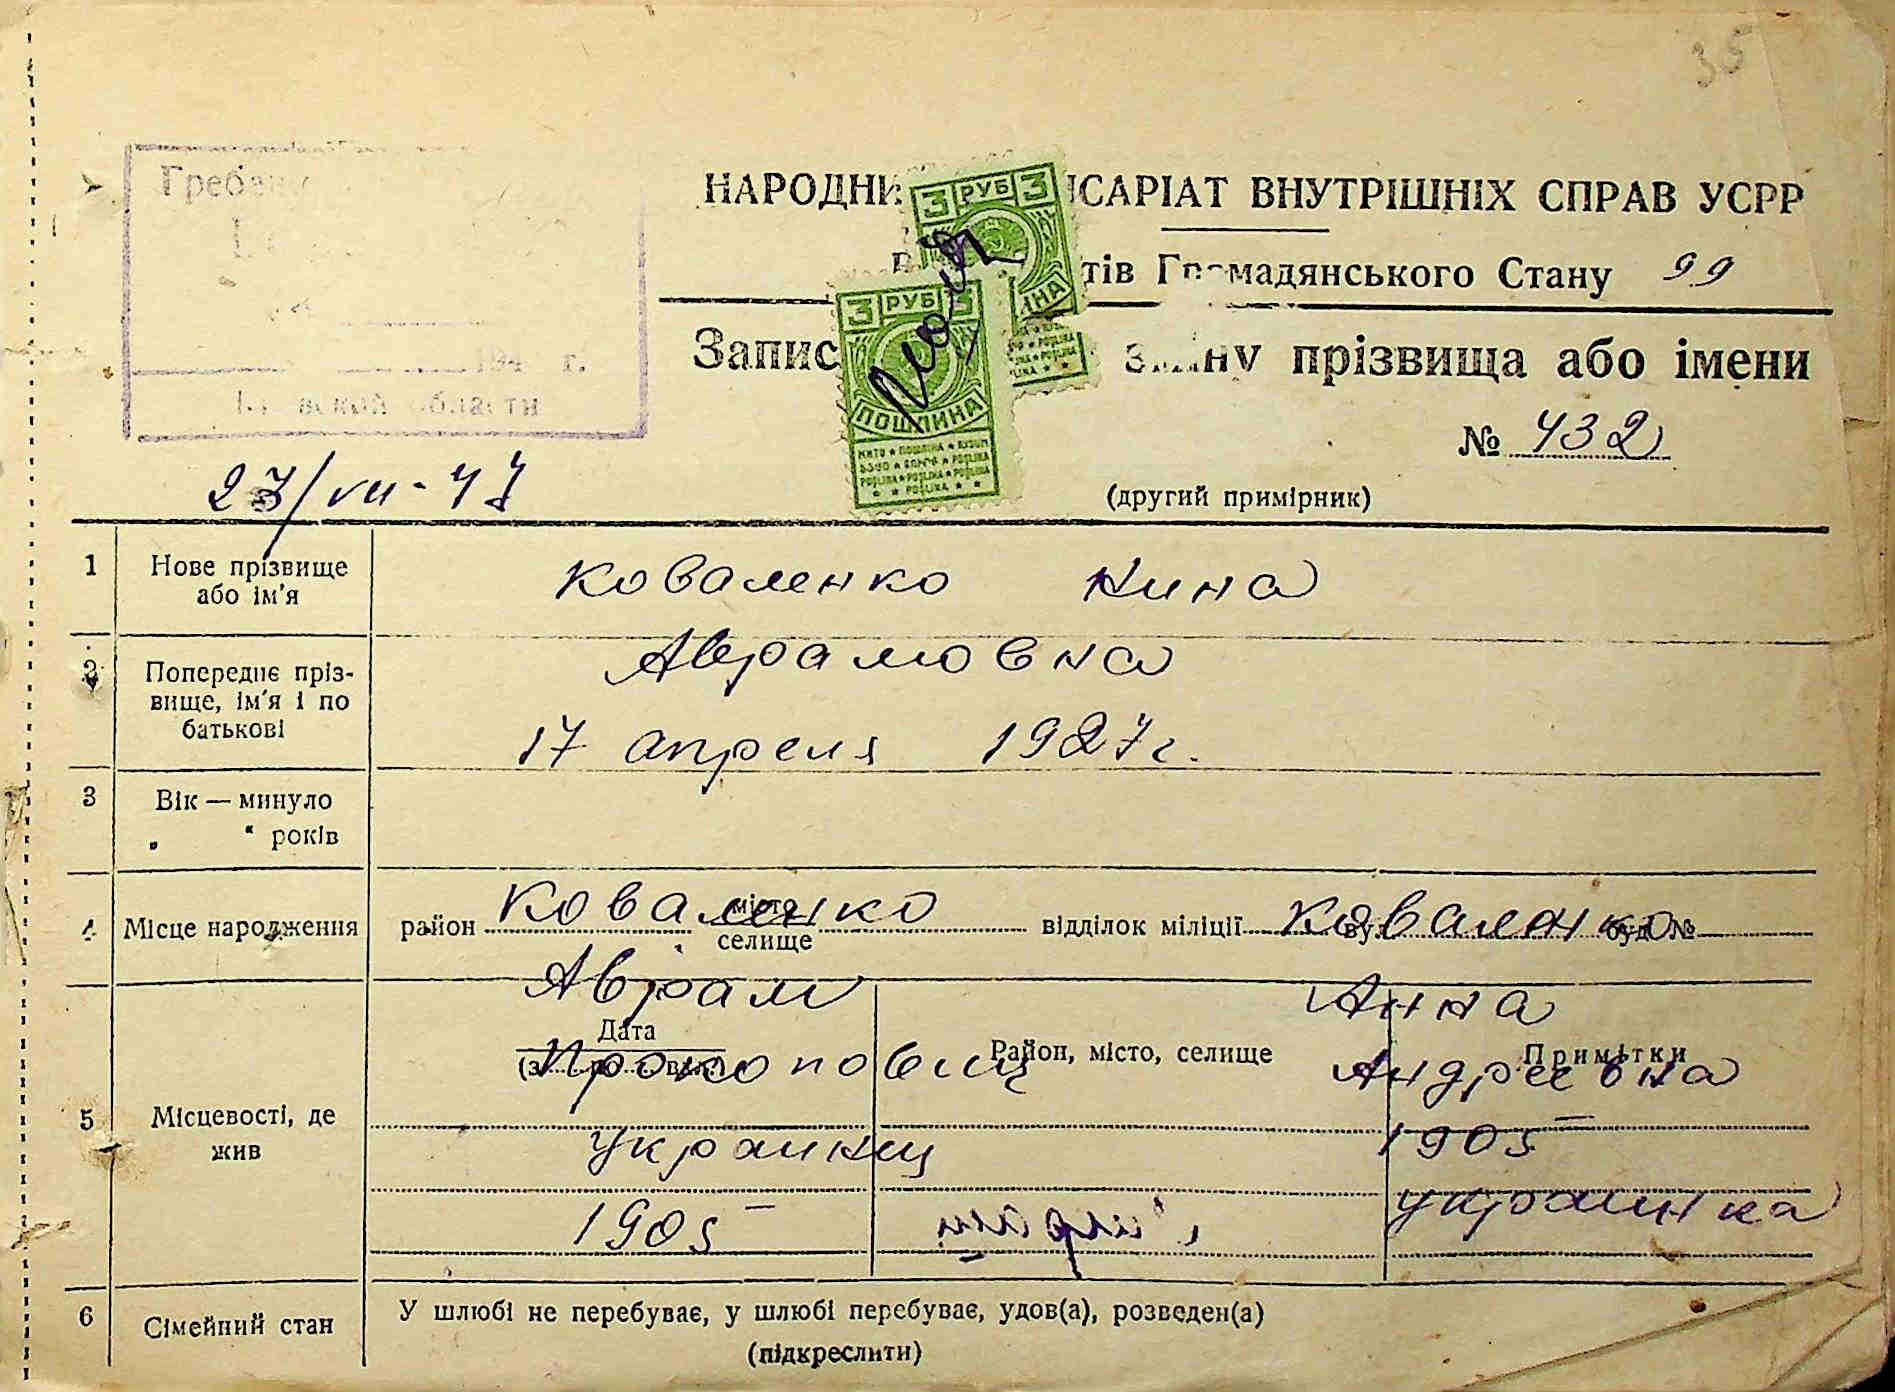 35
НАРОДНИ ІСАРІАТ ВНУТРІШНІХ СПРАВ УСРР
тів Громадянського Стану 99
Запис зміну прізвища або імени
№ 432
(другий примірник)
Гребен
194 г.
області
3 РУБ 3
3 РУБ 3
ПОШЛИНА
27/VII-47
1 Нове прізвище або ім'я
Коваленко Нина
2 Попереднє прізвище, ім'я і по батькові
Аврамовна
17 апреля 1927 г.
3 Вік — минуло
„ “ років
4 Місце народження район місто селище відділок міліції вул. буд. №
Коваленко Коваленко
Аврам Анна
Дата Район, місто, селище Примітки
Прокопович Андреевна
5 Місцевості, де жив
украинец 1905
1905 украинка
6 Сімейний стан
У шлюбі не перебуває, у шлюбі перебуває, удов(а), розведен(а)
(підкреслити)